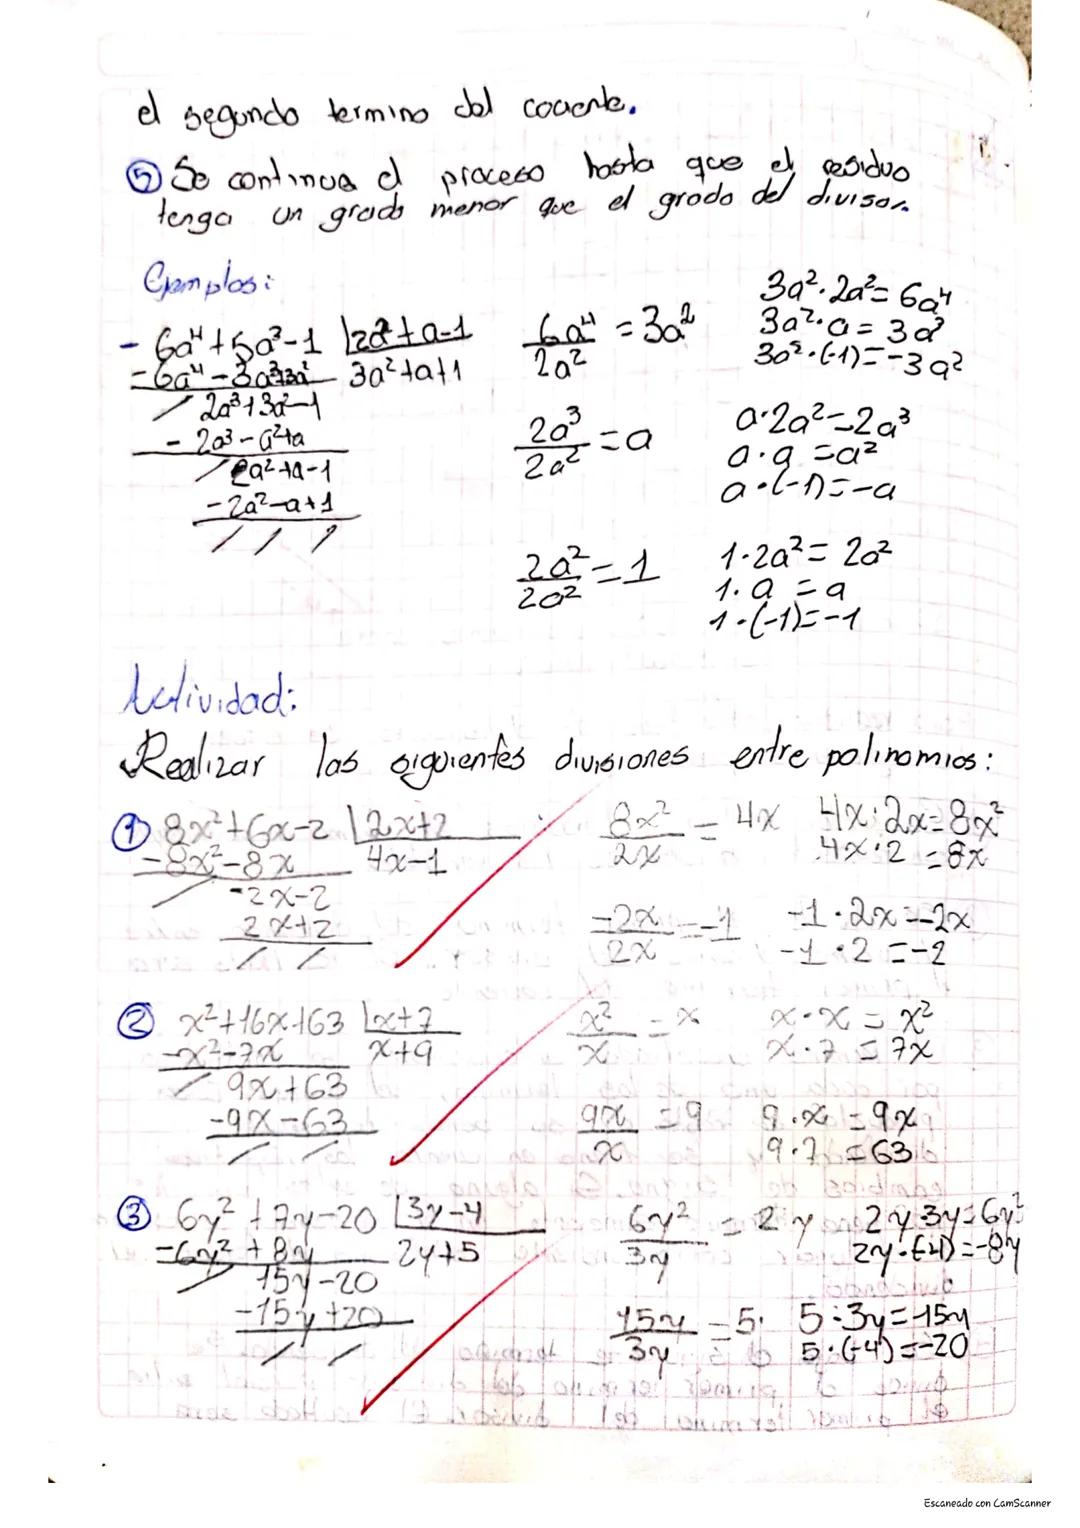 el segundo termino del cociente.
⑤ Se continua el proceso hasta que el residuo
tenga un grado menor que el grado del divisor.
Ejemplos:
- 6a⁴+5a³-1 |2a²+a-1
-6a⁴-3a³+3a² 3a²+a+1
2a³+3a²-1
-2a³-a²+a
2a²+a-1
-2a²-a+1
6a⁴/2a² = 3a²
3a²·2a²= 6a⁴
3a²·a = 3a³
3a²·(-1)=-3a²
2a³/2a² = a
a·2a²=2a³
a·a =a²
a·(-1)=-a
2a²/2a² = 1
1·2a²= 2a²
1·a = a
1·(-1)=-1
Actividad:
Realizar las siguientes divisiones entre polinomios:
① 8x²+6x-2 |2x+2
-8x²-8x 4x-1
-2x-2
2x+2
8x²/2x = 4x
4x·2x=8x²
4x·2 =8x
-2x/2x =-1
-1·2x=-2x
-1·2 =-2
② x²+16x+63 |x+7
-x²-7x x+9
9x+63
-9x-63
x²/x = x
x·x = x²
x·7 = 7x
9x/x = 9
9·x =9x
9·7 =63
③ 6y²+7y-20 |3y-4
-6y²+8y 2y+5
15y-20
-15y+20
6y²/3y = 2y
2y·3y=6y²
2y·(-4)=-8y
15y/3y =5
5·3y=15y
5·(-4)=-20
Escaneado con CamScanner